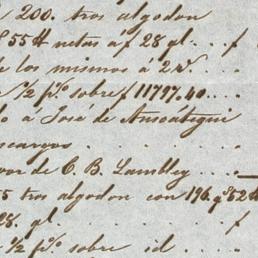 200. tros algodon
55 ℔ netas á f 28 gl... f
de los mismos á 2 r....
½ p%. sobre f 11797.40...
á José de Ansoátegui
descargos
favor de C. B. Lambley....
55 tros algodon con 196. q
28. gl.... f
½ p%. sobre id....